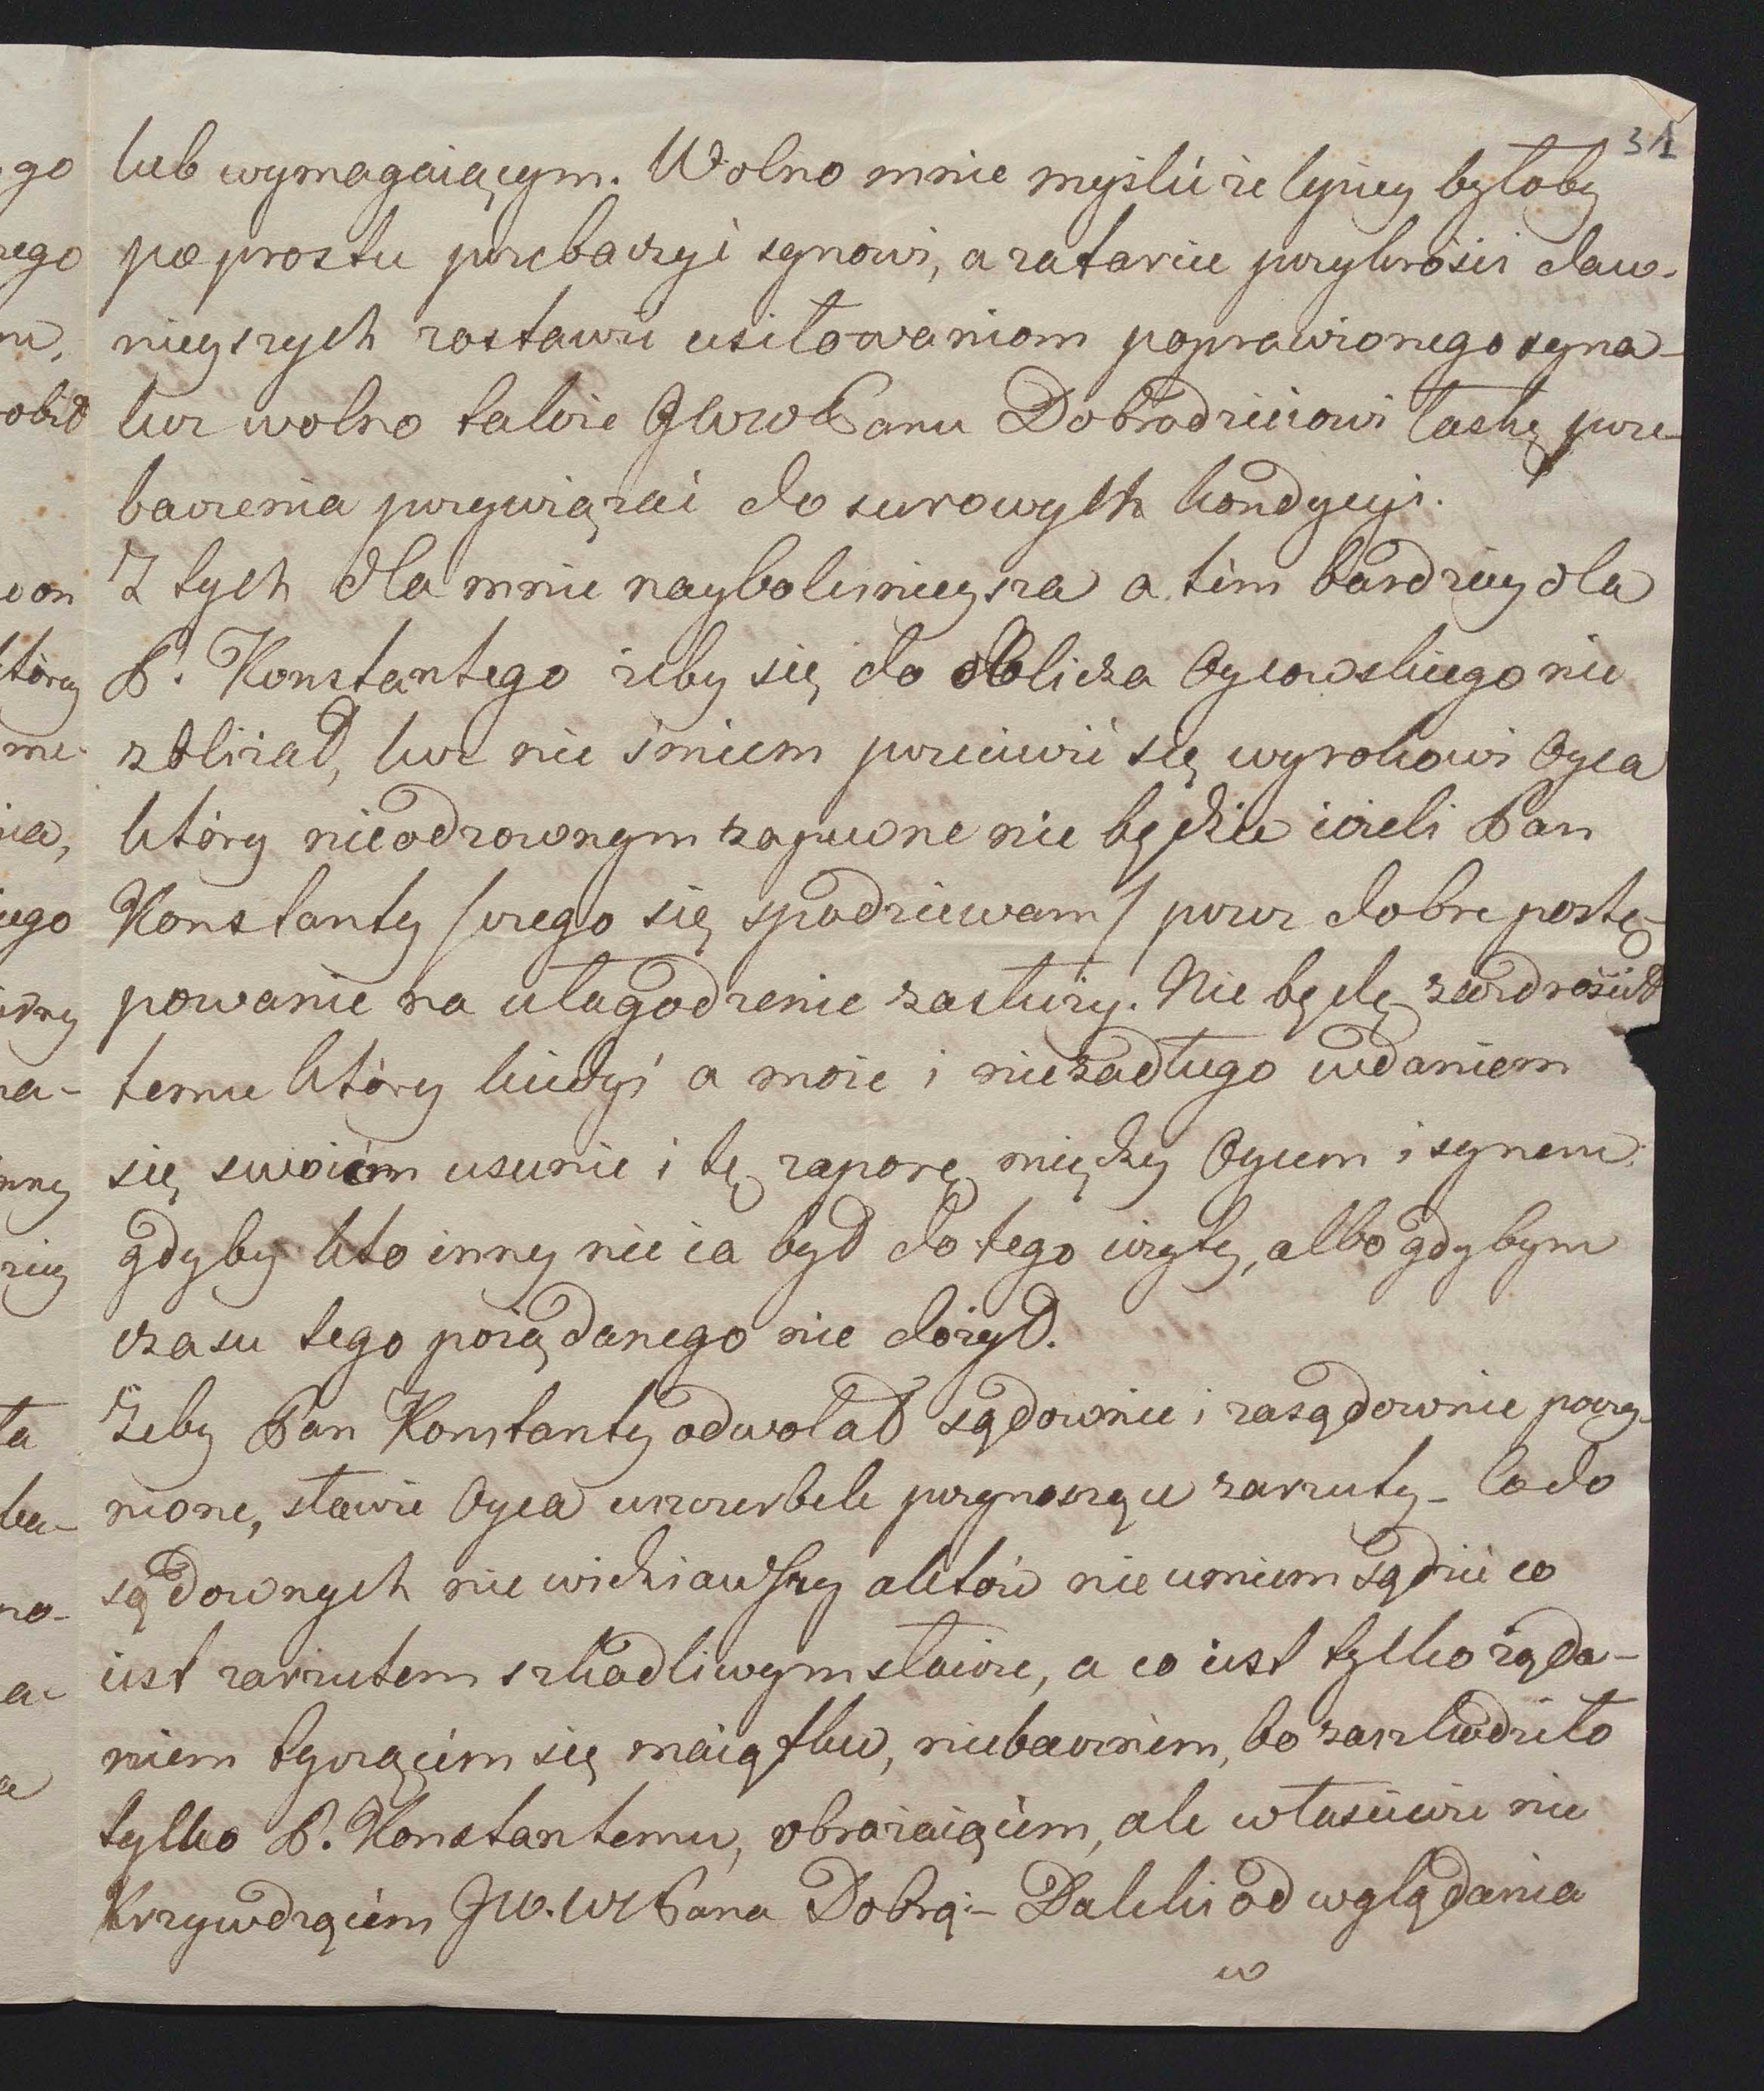 31
lub wymagaiącym. Wolno mnie myślić że lepiey byłoby
po prostu przebaczyć synowi, a zatarcie przykrości daw-
nieyszych zostawić usiłowaniom poprawionego syna-
lecz wolno także JWWPanu Dobrodzieiowi łaskę prze-
baczenia przywiązać do surowych kondycyi.
Z tych dla mnie nayboleśnieysza a tém bardziey dla
P. Konstantego żeby się do oblicza Oycowskiego nie
zbliżał, lecz nie śmiem przeciwić się wyrokowi Oyca
który nieodzownym zapewne nie będzie ieżeli Pan
Konstanty /czego się spodziewam/ przez dobre postę-
powanie na ułagodzenie zasłuży. Nie będę zazdrościł
temu który kiedyś a może i niezadługo wdaniem
się swoiém usunie i tę zaporę między Oycem i synem:
gdyby kto inny nie ia był do tego użyty, albo gdybym
czasu tego pożądanego nie dożył.
Żeby Pan Konstanty odwołał sądownie i zasądownie poczy-
nione, sławie Oyca uszczerbek przynoszące zarzuty- Co do
sądownych nie widziawszy aktów nie umiem sądzić co
iest zarzutem szkodliwym sławie, a co iest tylko żąda-
niem tyczącém się maiątku, niebacznem, bo zaszkodziło
tylko P. Konstantemu, obrażaiącém, ale właściwie nie
krzywdzącém JW.WPana Dobrą:- Daleki od wglądania
w
go
rego
m,
obił
on
którey
me-
ia,
iego
na-
inny
ziey
ta
no-
a-